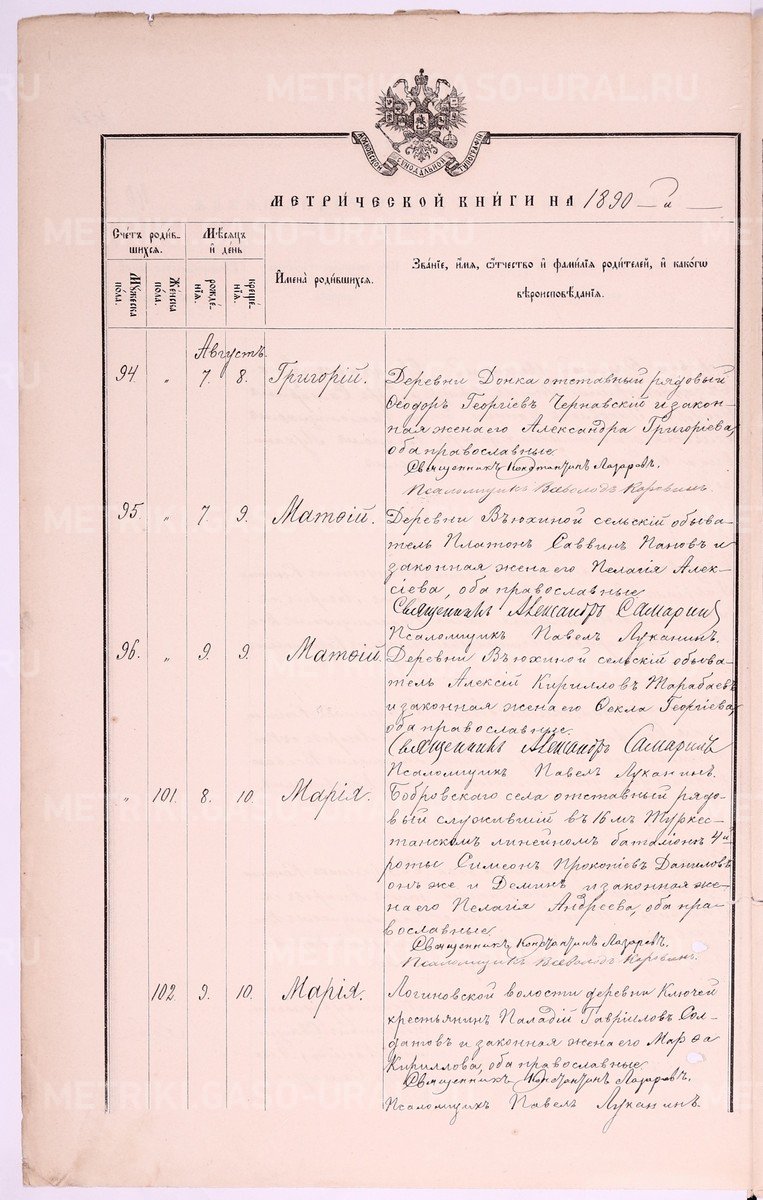 МОСКОВСКОЙ СѴНОДАЛЬНОЙ ТИПОГРАФІИ
МЕТРИ́ЧЕСКОЙ КНИ́ГИ НА 1890 й
Сче́тъ роди́в-
шихся.
Мꙋ́жеска
по́ла.
Же́нска
по́ла.
Мѣ́сяцъ
и҆ де́нь
рожде́-
нїѧ.
креще́-
нїѧ.
И҆мена̀ роди́вшихся.
Зва́нїе, и҆́мѧ, ѻ҆́тчество и҆ фами́лїѧ роди́телей, и҆ како́гѡ
вѣроисповѣ́данїѧ.
Августъ.
94. „ 7. 8. Григорій. Деревни Донка отставный рядовый
Ѳеодоръ Георгіевъ Чернавскій и закон-
ная жена его Александра Григоріева,
оба православные
Священникъ Константинъ Лазаревъ.
Псаломщикъ Всеволодъ Коровинъ.
95. „ 7. 9. Матѳій. Деревни Вьюхиной сельскій обыва-
тель Платонъ Саввинъ Пановъ и
законная жена его Пелагія Алек-
сіева, оба православные
Священникъ Александръ Самаринъ
Псаломщикъ Павелъ Луканинъ.
96. „ 9. 9. Матѳій. Деревни Вьюхиной сельскій обыва-
тель Алексій Кирилловъ Жарабаевъ
и законная жена его Ѳекла Георгіева,
оба православные.
Священникъ Александръ Самаринъ
Псаломщикъ Павелъ Луканинъ.
„ 101. 8. 10. Марія. Бобровскаго села отставный рядо-
вый служившій въ 16 мъ Турке-
станскомъ линейномъ баталіонѣ 4й
роты Симеонъ Прокопіевъ Даниловъ
онъ же и Деминъ и законная же-
на его Пелагія Андреева, оба пра-
вославные
Священникъ Константинъ Лазаревъ.
Псаломщикъ Всеволодъ Коровинъ.
102. 9. 10. Марія. Логиновской волости деревни Ключей
крестьянинъ Паладій Гавріиловъ Сол-
датовъ и законная жена его Марѳа
Кириллова, оба православные
Священникъ Константинъ Лазаревъ.
Псаломщикъ Павелъ Луканинъ.
METRIKI.GASO-URAL.RU